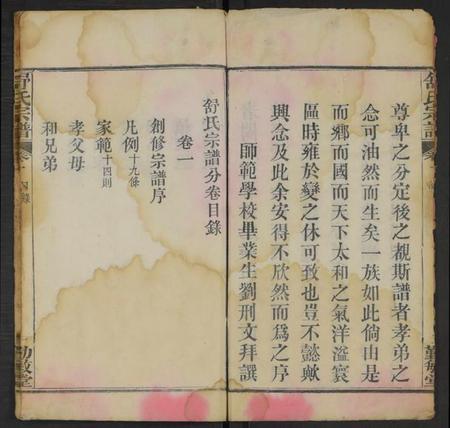 尊卑之分定後之覩斯譜者孝弟之
念可油然而生矣一族如此倘由是
而鄉而國而天下太和之氣洋溢寰
區時雍於變之休可致也豈不懿歟
興念及此余安得不欣然而為之序
師範學校畢業生劉刑文拜譔
舒氏宗譜分卷目錄
卷一
創修宗譜序
凡例十九條
家範十四則
孝父母
和兄弟
舒氏宗譜